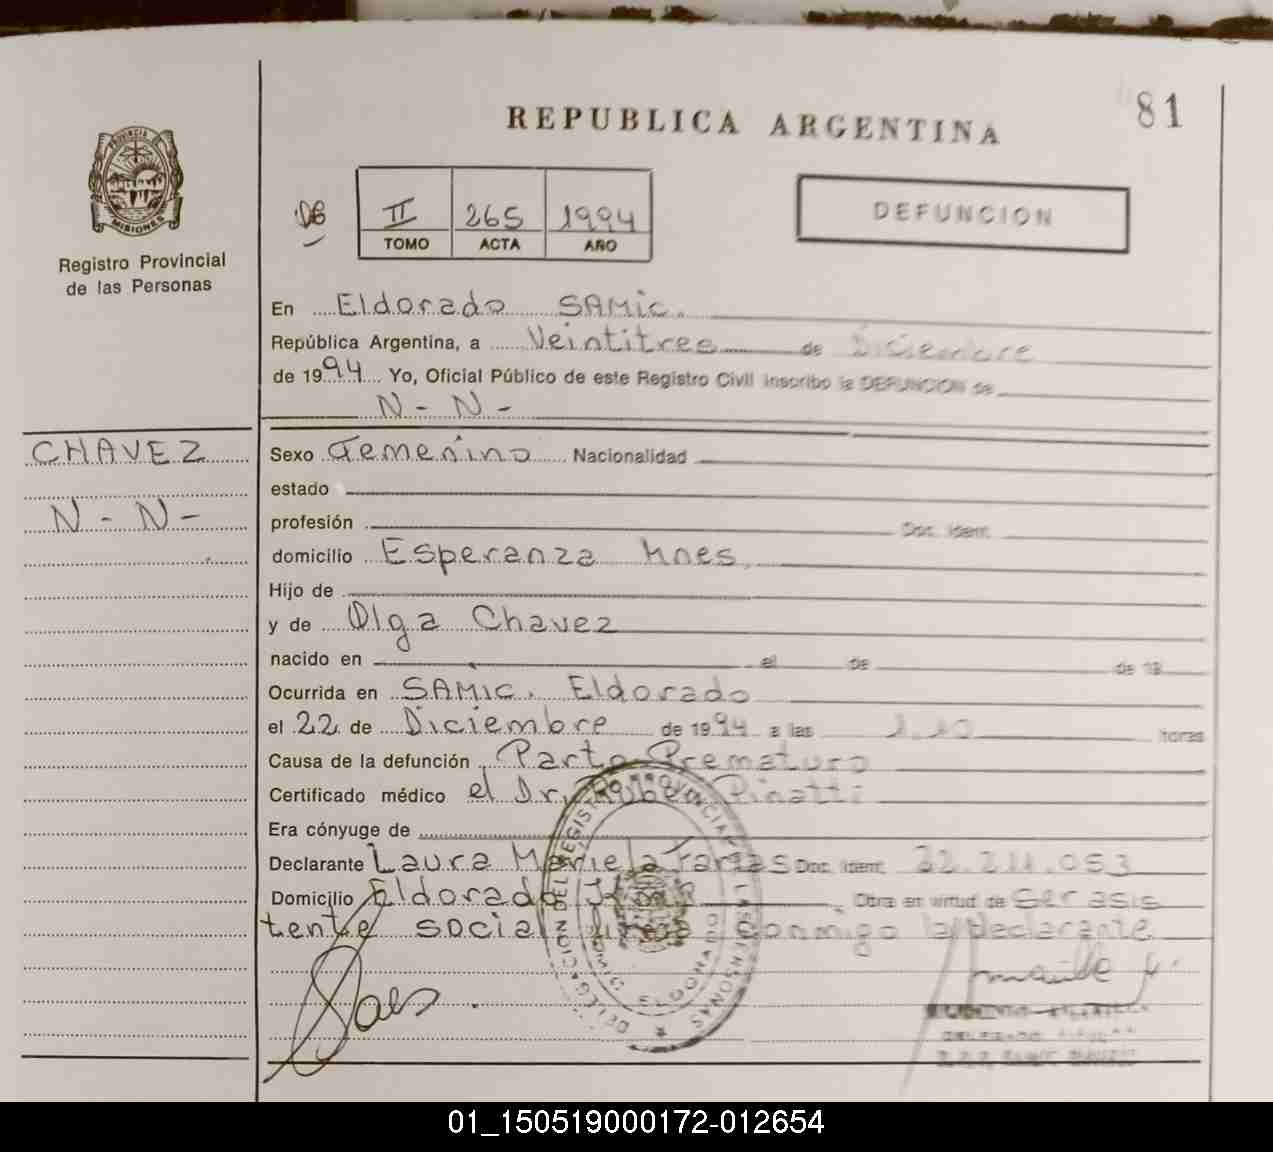 81
REPUBLICA ARGENTINA
PROVINCIA
MISIONES
Registro Provincial
de las Personas
II 265 1994
TOMO ACTA AÑO
DEFUNCION
En Eldorado SAMic.
República Argentina, a Veintitres de Diciembre
de 1994 Yo, Oficial Público de este Registro Civil inscribo la DEFUNCION de
N - N -
CHAVEZ
N - N -
Sexo Femenino Nacionalidad
estado
profesión Doc. Ident.
domicilio Esperanza Mnes.
Hijo de
y de Olga Chavez
nacido en el de de 19
Ocurrida en SAMIC. Eldorado
el 22 de Diciembre de 1994 a las 1.10 horas
Causa de la defunción Parto Prematuro
Certificado médico el Dr. Pinatti
Era cónyuge de
Declarante Laura Mariela Doc. Ident.
Domicilio Eldorado Obra en virtud de Ser asis
tente social conmigo la declarante
DELEGACION DEL REGISTRO PROVINCIAL DE LAS PERSONAS
ELDORADO
01_150519000172-012654